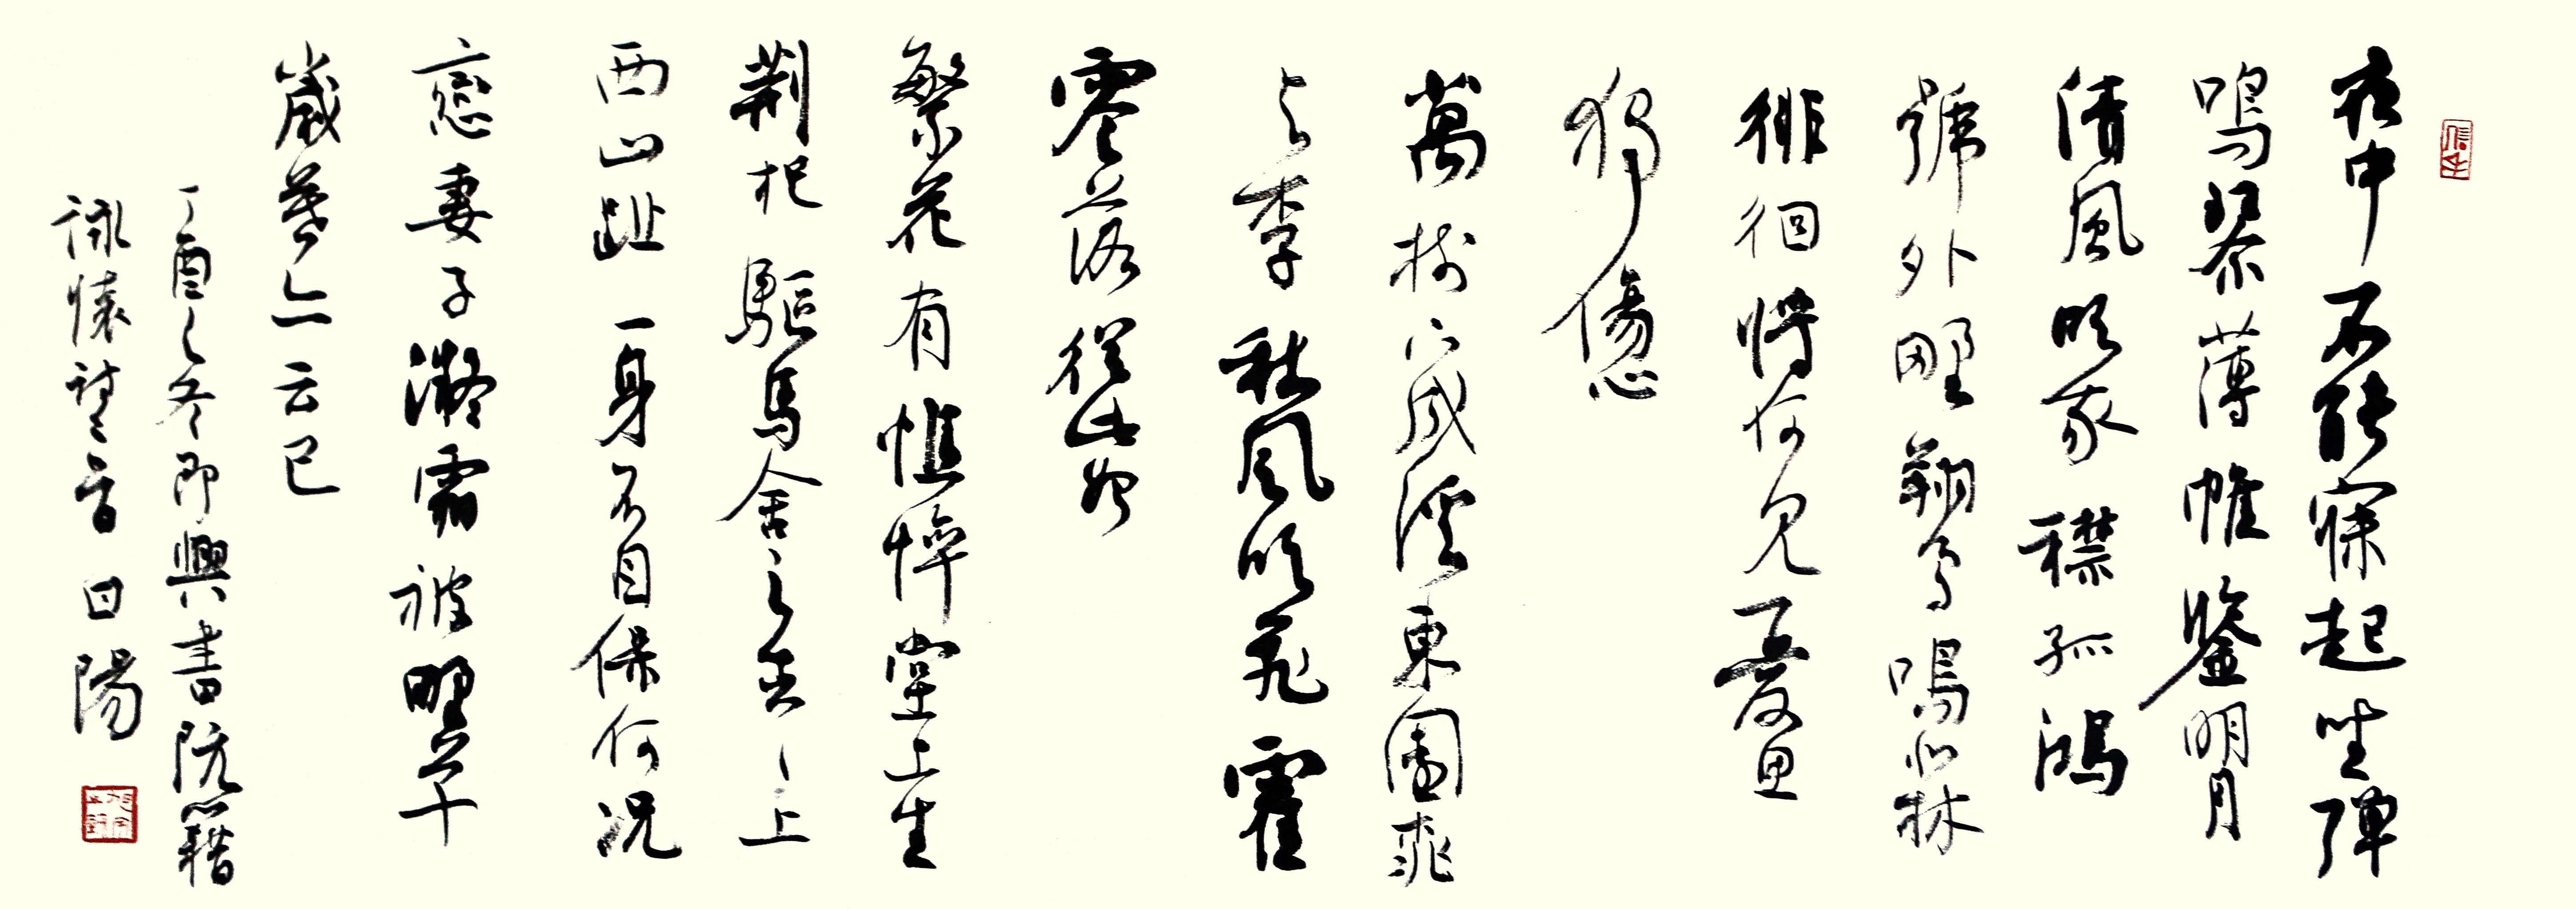 信手
夜中不能寐起坐彈
鳴琴薄帷鑒明月
清風吹我襟孤鴻
號外野翔鳥鳴北林
徘徊將何見憂思
獨傷心
萬樹下成溪東園桃
与李秋風吹飛霍
零落從此始
繁花有憔悴堂上生
荆杞驅馬舍之去々上
西山趾一身不自保何況
戀妻子凝霜被野草
歲暮亦云已
丁酉之冬即興書阮籍
詠懷詩二首日陽